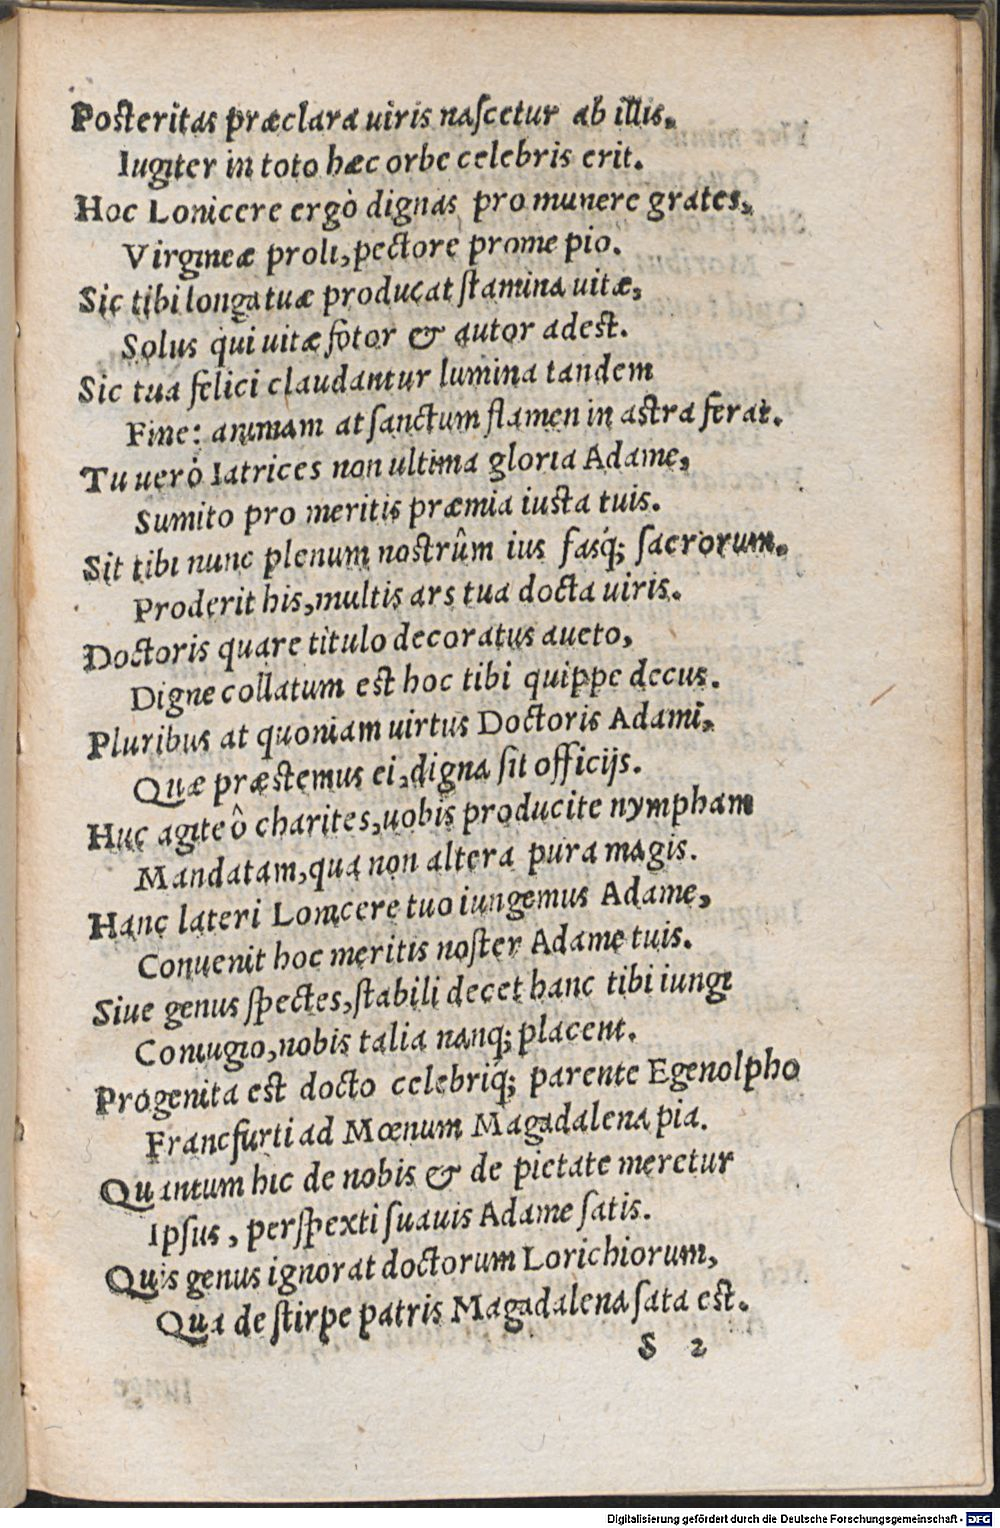 Posteritas præclara uiris nascetur ab illis,
Iugiter in toto hæc orbe celebris erit.
Hoc Lonicere ergò dignas pro munere grates,
Virgineæ proli, pectore prome pio.
Sic tibi longa tuæ producat stamina uitæ,
Solus qui uitæ fotor & autor adest.
Sic tua felici claudantur lumina tandem
Fine: animam at sanctum flamen in astra ferat.
Tu uerò Iatrices non ultima gloria Adame,
Sumito pro meritis præmia iusta tuis.
Sit tibi nunc plenum nostrûm ius fasq́; sacrorum.
Proderit his, multis ars tua docta uiris.
Doctoris quare titulo decoratus aueto,
Digne collatum est hoc tibi quippe decus.
Pluribus at quoniam uirtus Doctoris Adami,
Quæ præstemus ei, digna sit officijs.
Huc agite ô charites, uobis producite nympham
Mandatam, qua non altera pura magis.
Hanc lateri Lonicere tuo iungemus Adame,
Conuenit hoc meritis noster Adame tuis.
Siue genus spectes, stabili decet hanc tibi iungi
Coniugio, nobis talia nanq; placent.
Progenita est docto celebriq́; parente Egenolpho
Francfurti ad Mœnum Magadalena pia.
Quantum hic de nobis & de pietate meretur
Ipsus, perspexti suauis Adame satis.
Quis genus ignorat doctorum Lorichiorum,
Qua de stirpe patris Magadalena sata est.
S 2
Digitalisierung gefördert durch die Deutsche Forschungsgemeinschaft - DFG